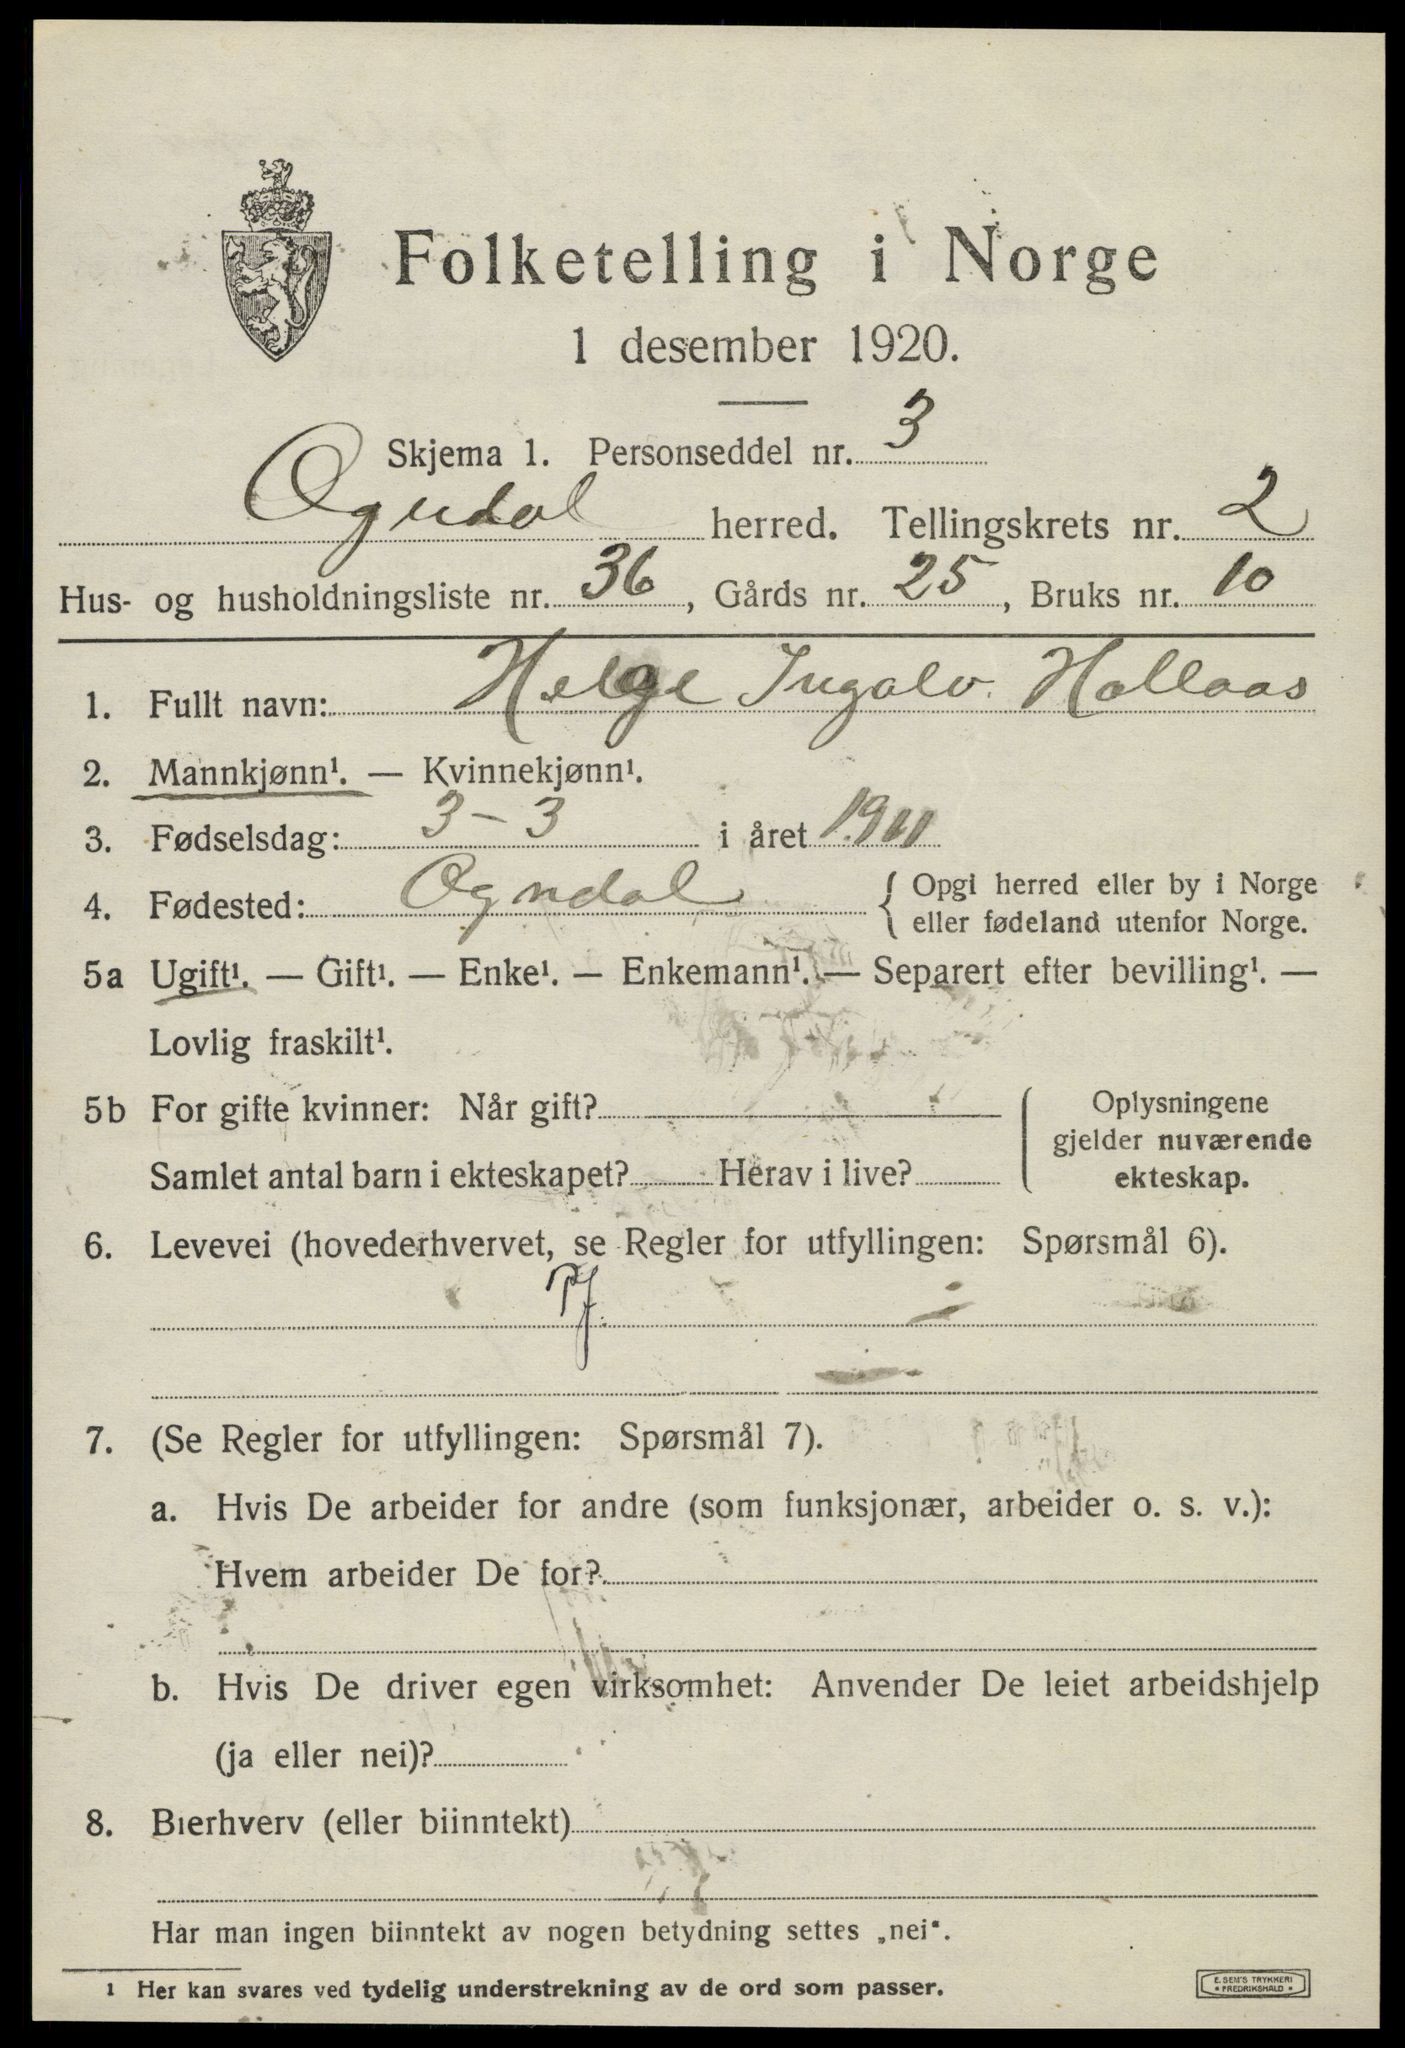 Folketelling i Norge
1 desember 1920.
Skjema 1. Personseddel nr. 3
Ogndal herred. Tellingskrets nr. 2
Hus- og husholdningsliste nr. 36, Gårds nr. 25, Bruks nr. 10
1. Fullt navn: Helge Ingalv. Hallaas
2. Mannkjønn¹. — Kvinnekjønn¹.
3. Fødselsdag: 3-3 i året 1911
4. Fødested: Ogndal { Opgi herred eller by i Norge
eller fødeland utenfor Norge.
5a Ugift¹. — Gift¹. — Enke¹. — Enkemann¹. — Separert efter bevilling¹. —
Lovlig fraskilt¹.
5b For gifte kvinner: Når gift?
Samlet antal barn i ekteskapet? Herav i live?
Oplysningene
gjelder nuværende
ekteskap.
6. Levevei (hovederhvervet, se Regler for utfyllingen: Spørsmål 6).
7. (Se Regler for utfyllingen: Spørsmål 7).
a. Hvis De arbeider for andre (som funksjonær, arbeider o. s. v.):
Hvem arbeider De for?
b. Hvis De driver egen virksomhet: Anvender De leiet arbeidshjelp
(ja eller nei)?
8. Bierhverv (eller biinntekt)
Har man ingen biinntekt av nogen betydning settes „nei“.
1 Her kan svares ved tydelig understrekning av de ord som passer.
E. SEM'S TRYKKERI
* FREDRIKSHALD *